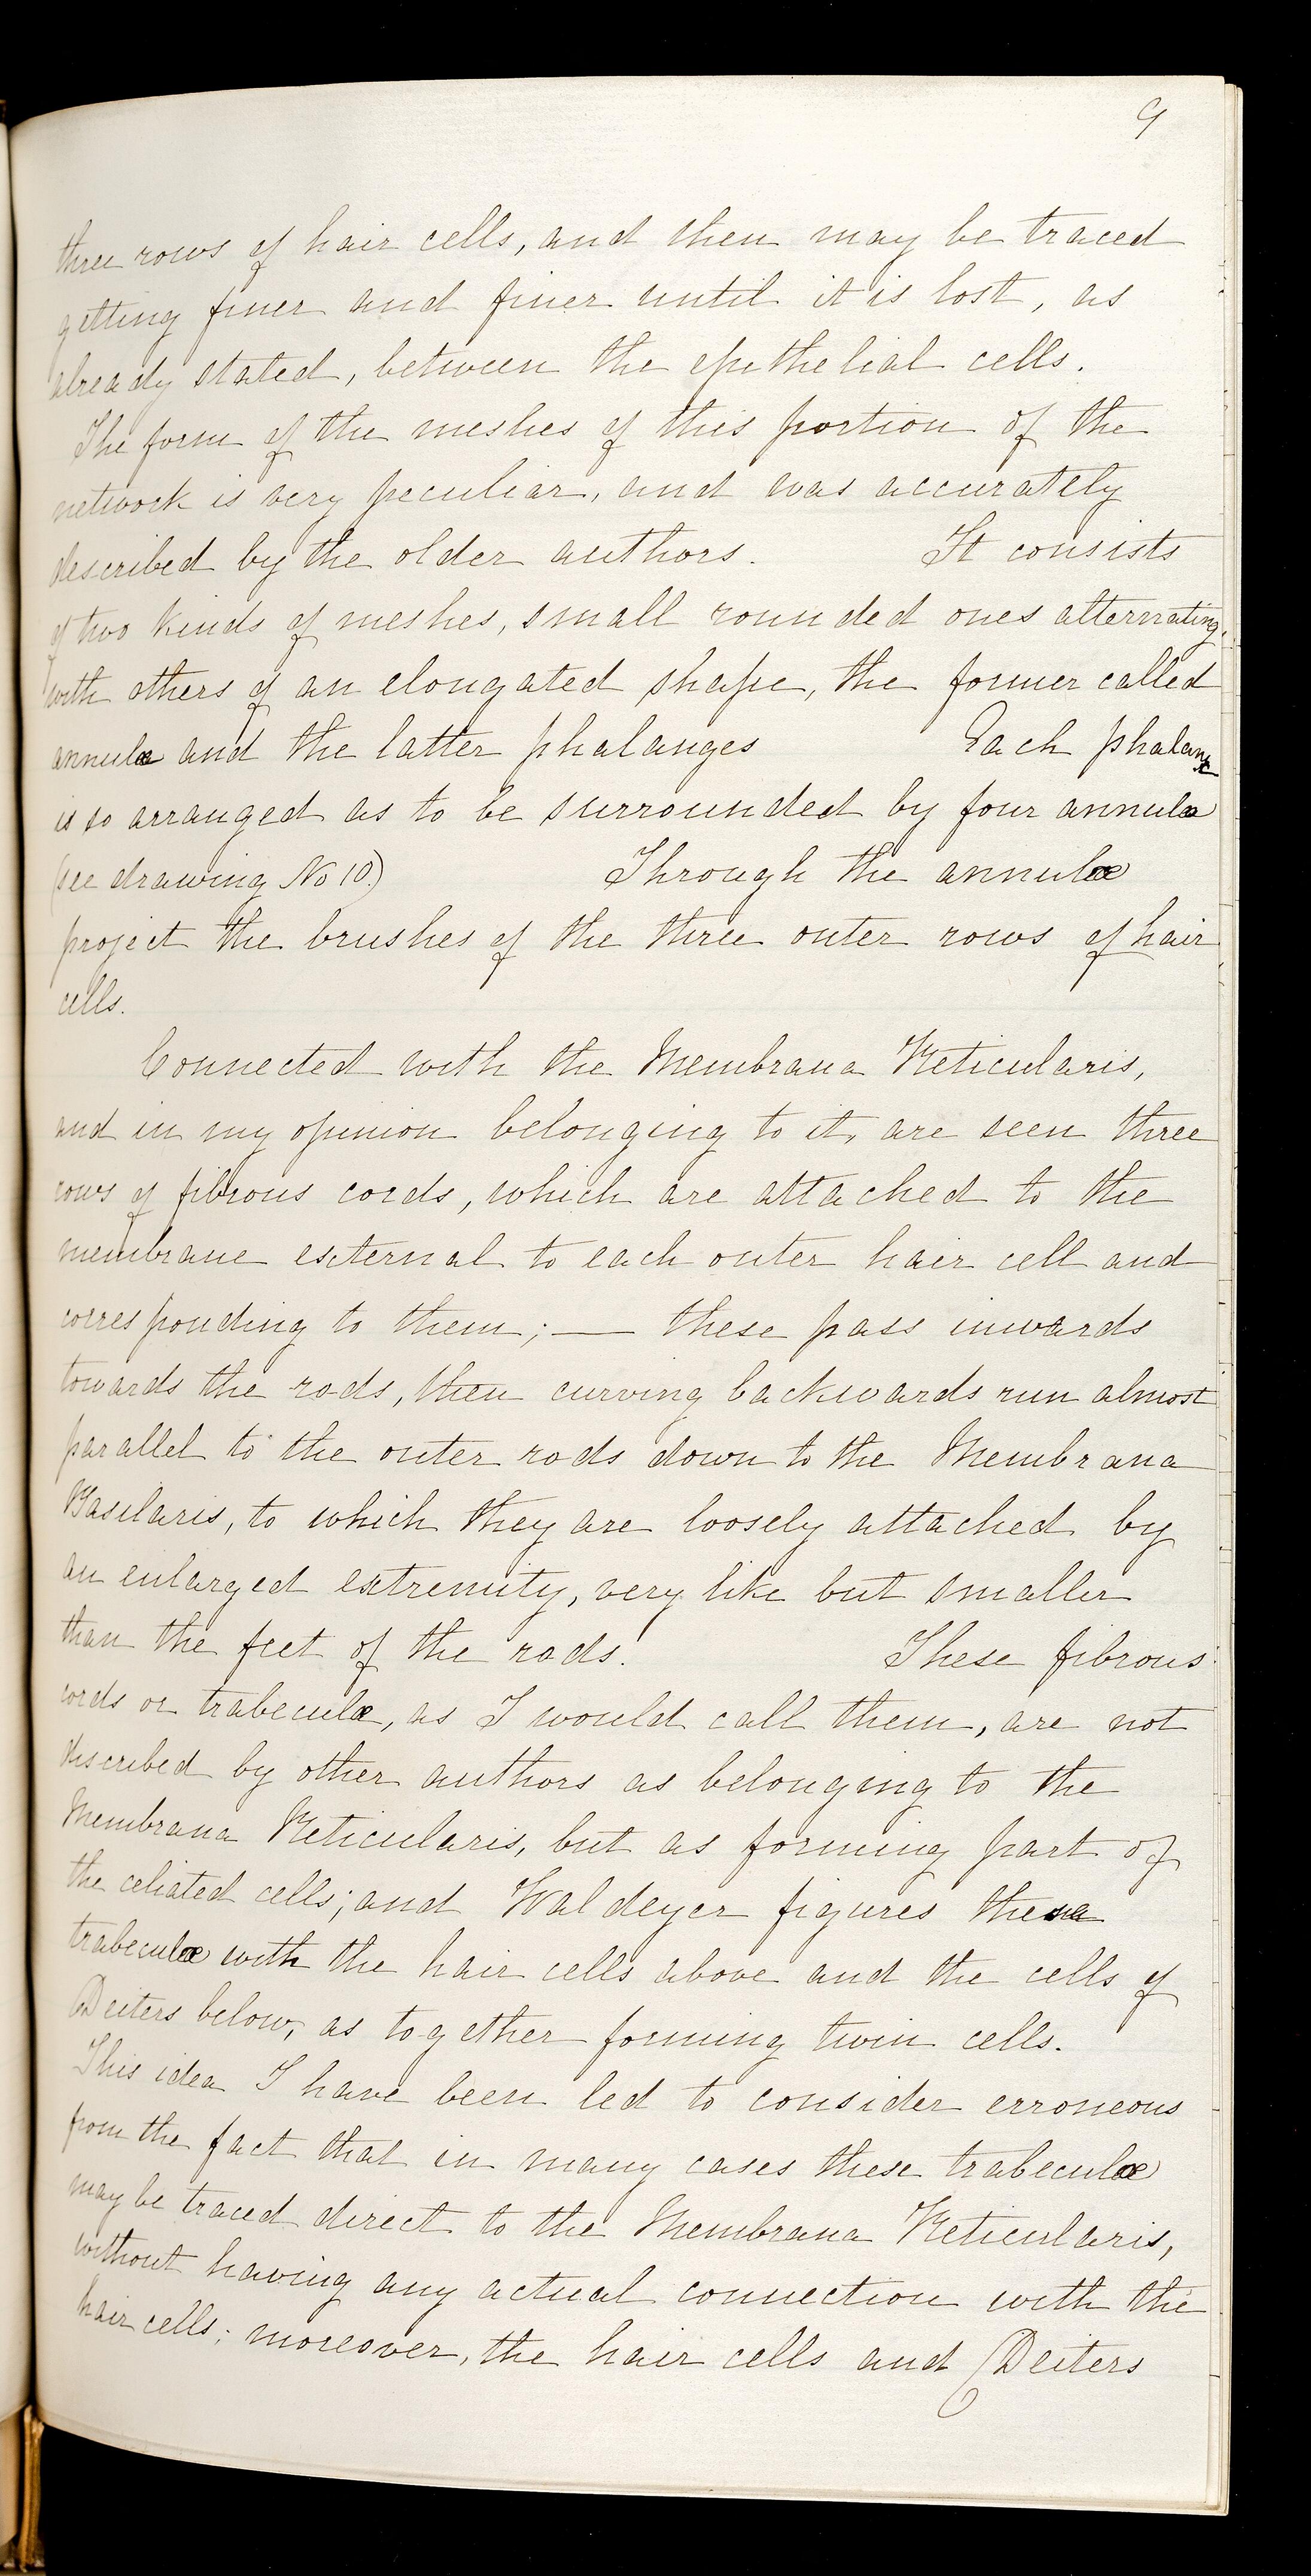 9
three rows of hair cells, and then may be traced
getting finer and finer until it is lost, as
already stated, between the epithelial cells.
The form of the meshes of this portion of the
network is very peculiar, and was accurately
described by the older authors. It consists
of two kinds of meshes, small rounded ones alternating
with others of an elongated shape, the former called
annulæ and the latter phalanges Each phalanx
is so arranged as to be surrounded by four annulæ
(see drawing No 10.) Through the annulæ
project the brushes of the three outer rows of hair
cells.
Connected with the Membrana Reticularis,
and in my opinion belonging to it, are seen three
rows of fibrous cords, which are attached to the
membrane external to each outer hair cell and
corresponding to them; — these pass inwards
towards the rods, then curving backwards run almost
parallel to the outer rods down to the Membrana
Basilaris, to which they are loosely attached by
an enlarged extremity, very like but smaller
than the feet of the rods. These fibrous
cords or trabeculæ, as I would call them, are not
discribed by other authors as belonging to the
Membrana Reticularis, but as forming part of
the celiated cells; and Waldeyer figures these
trabeculæ with the hair cells above and the cells of
Deiters below, as together forming twin cells.
This idea I have been led to consider erroneous
from the fact that in many cases these trabeculæ
may be traced direct to the Membrana Reticularis,
without having any actual connection with the
hair cells; moreover, the hair cells and Deiters